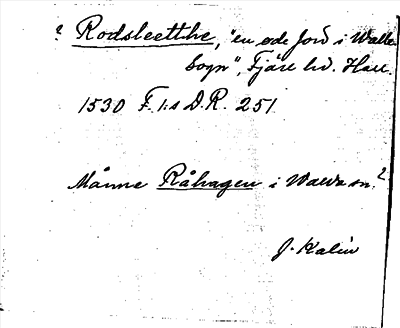 ? Rodsleetthe, "en øde Jord i Walle
Sogn", Fjäre hd. Hall.
1530 F. 1:s D.R. 251.
Månne Råhagen i Walda sn.?
J. Kalén